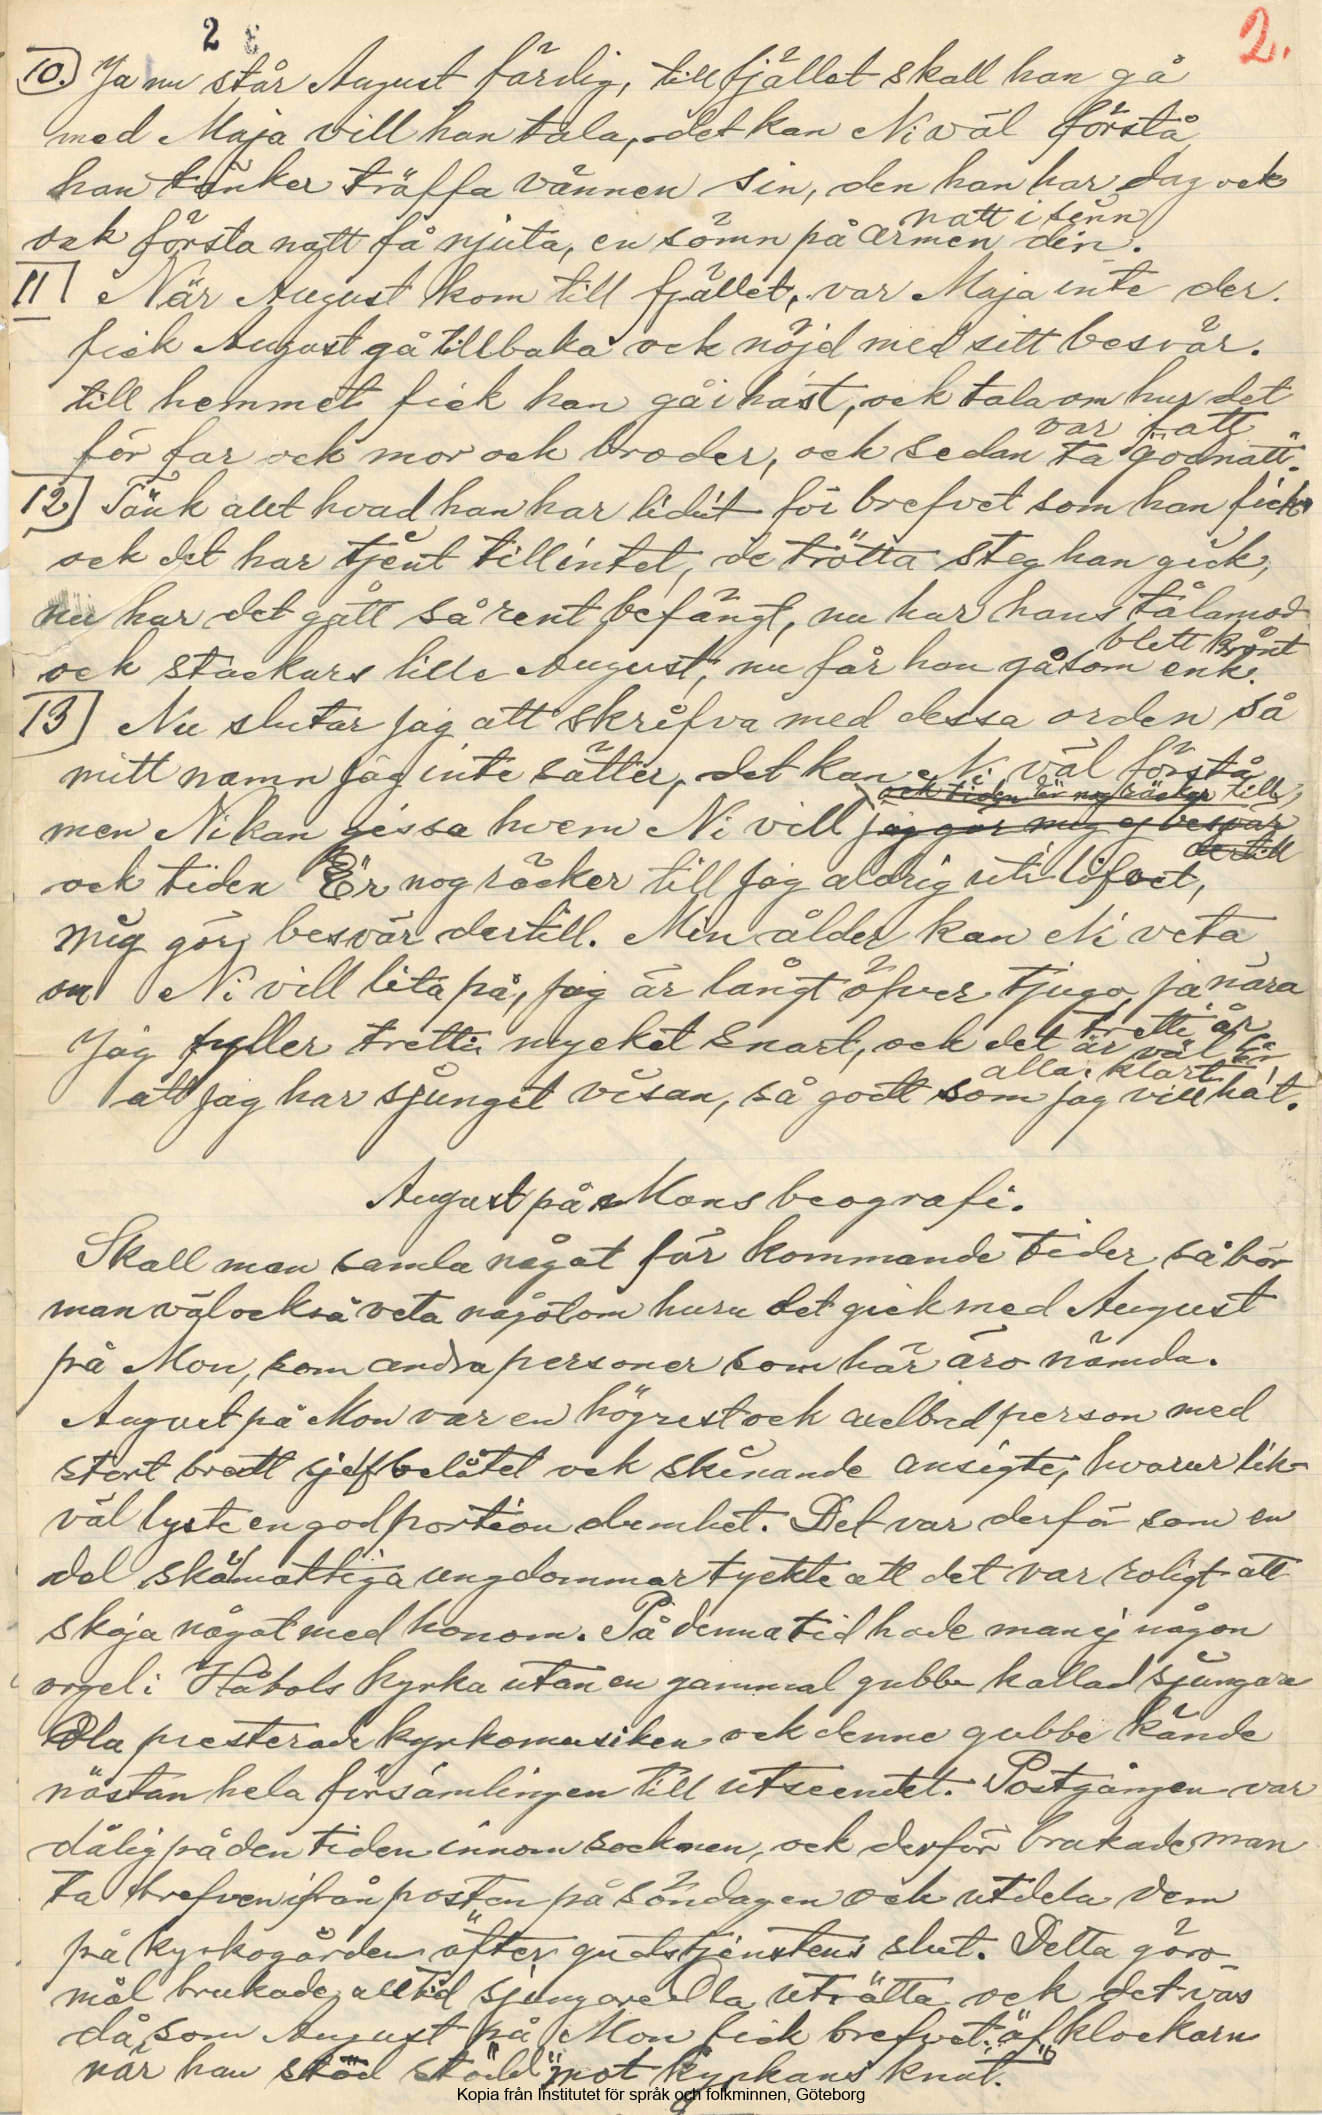 2
2.
10.) Ja nu står August färdig, till fjället skall han gå
med Maja vill han tala, det kan Ni väl förstå
han tänker träffa vännen sin, den han har dag ock
natt i sinn
ock första natt få njuta, en sömn på armen din.
11) När August kom till fjället, var Maja inte der.
fick August gå tillbaka ock nöjd med sitt besvär.
till hemmet fick han gå i hast, ock tala om hur det
var fatt
för far ock mor ock broder, ock sedan ta godnatt.
12) Tänk allt hvad han har lidit för brefvet som han fick
ock det har tjent till intet, de trötta steg han gick,
nu har det gått så rent befängt, nu har hans tålamod
blett kränt
ock stackars lille August, nu får han gå som enk.
13) Nu slutar jag att skrifva med dessa orden så
mitt namn jag inte sätter, det kan Ni väl förstå
ock tiden är nog räcker till
men Ni kan gissa hvem Ni vill jag gör mig ej besvär
dertill
ock tiden Er nog räcker till jag aldrig uti lifvet,
mig gör besvär dertill. Min ålder kan Ni veta
om Ni vill lita på, jag är långt öfver tjugo, ja nära
tretti år
Jag fyller tretti mycket snart, ock det är väl för
alla klart
att jag har sjunget visan, så godt som jag vill hat.
August på Mons beografi.
Skall man samla något för kommande tider så bör
man väl också veta något om huru det gick med August
på Mon, som andra personer som här äro nämda.
August på Mon var en högrest ock axelbred person med
stort brett sjelfbelåtet ock skinande ansigte, hvarur lik-
väl lyste en god portion dumhet. Det var derför som en
del skälmattiga ungdommar tyckte att det var roligt att
skoja något med honom. På denna tid hade man ej någon
orgel i Håbols kyrka utan en gammal gubbe kallad Sjungare
Ola presterade kyrkomusiken ock denne gubbe kände
nästan hela församlingen till utseendet. Postgången var
dålig på den tiden innom socknen, ock derför brukade man
ta brefven ifrån posten på söndagen ock utdela dem
på kyrkogården äfter gudstjenstens slut. Detta göro-
mål brukade alltid sjungare Ola uträtta ock det var
då som August på Mon fick brefvet äf klockarn
när han stöd städd mot kyrkans knut.
Kopia från Institutet för språk och folkminnen, Göteborg